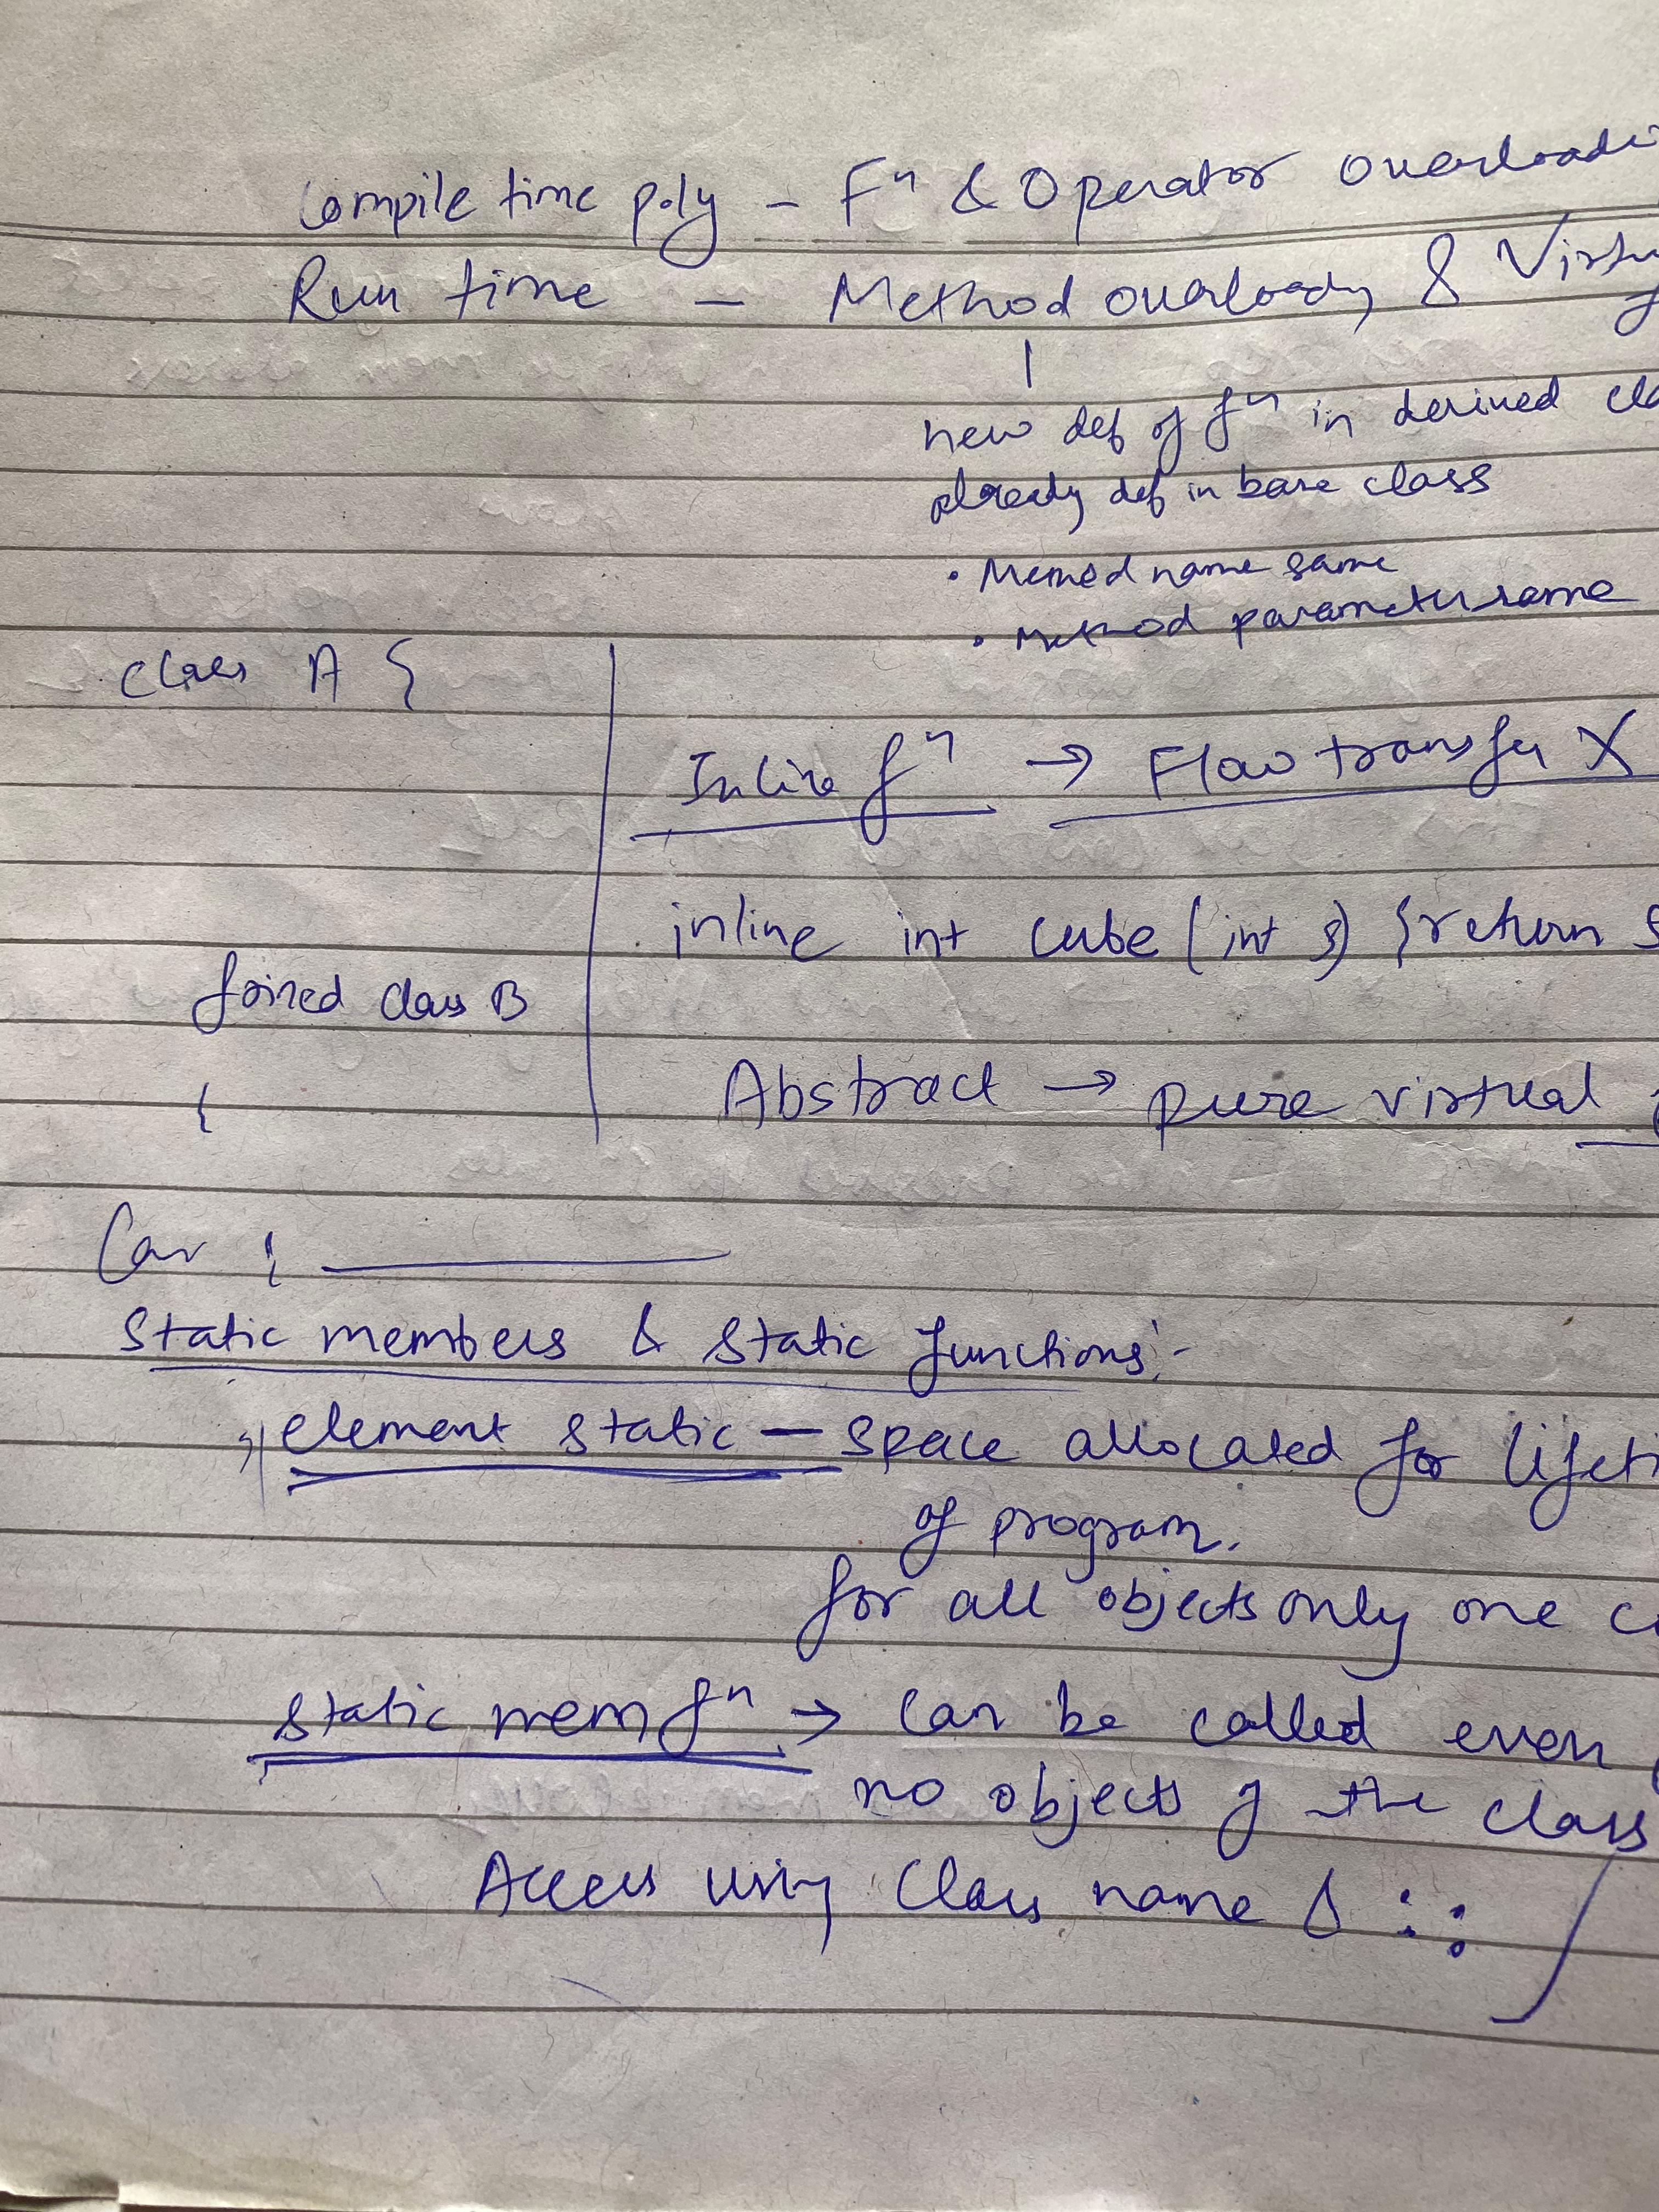 Compile time poly - Fⁿ & Operator overloadi
Run time - Method overloady & Virtu
new def of fⁿ in derived cla
already def in base class
• Memod name same
• Method parameter same
class A {
Inline fⁿ → Flow transfer X
inline int cube (int s) {return s
class B
{
Abstract → pure virtual f
Car {
Static members & static functions:-
element static - space allocated for lifeti
of program.
for all objects only one co
static mem fⁿ → can be called even
no objects of the class
Access using Class name & ::